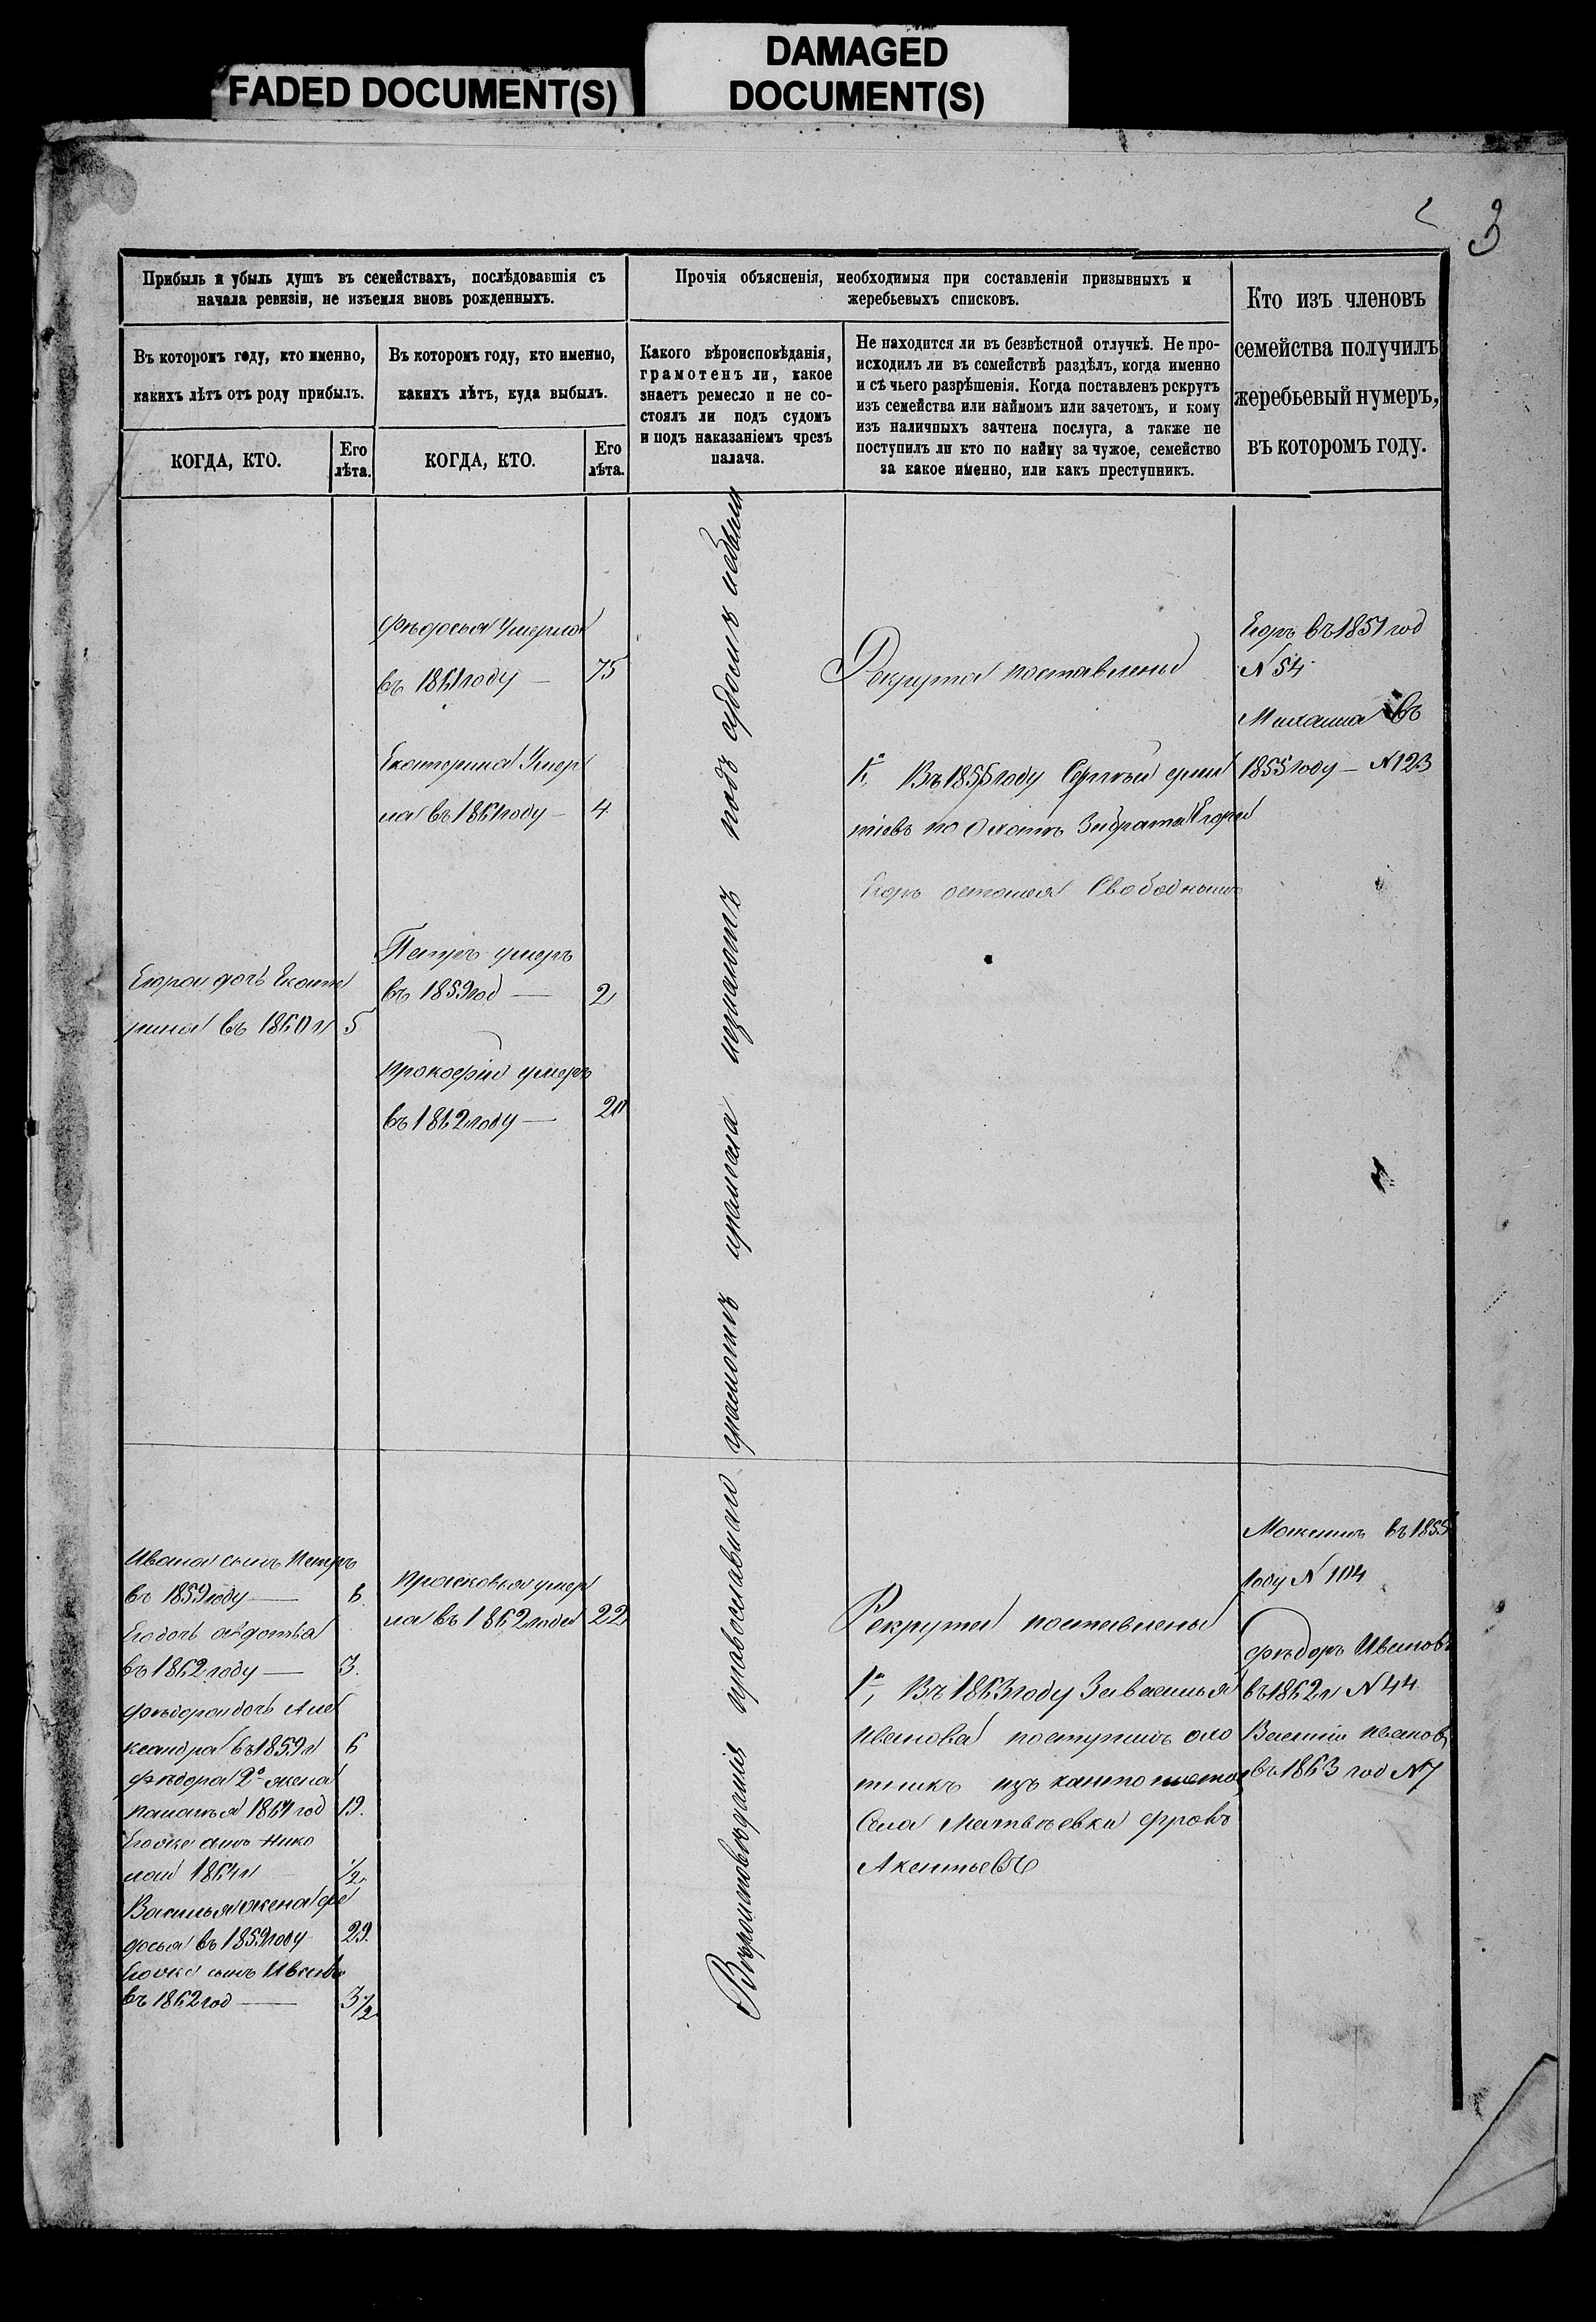 FADED DOCUMENT(S)
DAMAGED
DOCUMENT(S)
3
Прибыль и убыль душъ въ семействахъ, послѣдовавшія съ
начала ревизіи, не изъемля вновь рожденныхъ.
Прочія объясненія, необходимыя при составленіи призывныхъ и
жеребьевыхъ списковъ.
Кто изъ членовъ
семейства получилъ
жеребьевый нумеръ,
въ которомъ году.
Въ которомъ году, кто именно,
какихъ лѣтъ отъ роду прибылъ.
Въ которомъ году, кто именно,
какихъ лѣтъ, куда выбылъ.
Какого вѣроисповѣданія,
грамотенъ ли, какое
знаетъ ремесло и не со-
стоялъ ли подъ судомъ
и подъ наказаніемъ чрезъ
палача.
Не находится ли въ безвѣстной отлучкѣ. Не про-
исходилъ ли въ семействѣ раздѣлъ, когда именно
и съ чьего разрѣшенія. Когда поставленъ рекрутъ
изъ семейства или наймомъ или зачетомъ, и кому
изъ наличныхъ зачтена послуга, а также не
поступилъ ли кто по найму за чужое, семейство
за какое именно, или какъ преступникъ.
КОГДА, КТО.
Его
лѣта.
КОГДА, КТО.
Его
лѣта.
Фѣдосья Умерла
въ 1861 году — 75
Екатерина Умер
ла въ 1861 году — 4
Петръ умеръ
въ 1859 год — 2
Прокофій умеръ
въ 1862 году — 20
Егора дочь Екате
рина въ 1860 г 5
Рекрута поставлены
1е, Въ 1855 году Сергѣй
по Охотѣ За брата Егора
Егоръ остался Свободнымъ
Егоръ въ 1851 год
N 54
Михаила въ
1855 году — N 123
Вѣроисповѣданія православнаго грамотѣ незнаютъ подъ судомъ небыли
Ивана сынъ Петръ
въ 1859 году — 6
Его дочь авдотья
въ 1862 году — 3.
Фѣдора дочь Але
ксандра въ 1859 г 6
Фѣдора 2я жена
1864 год 19.
Егоже сынъ Нико
лай 1864 г 1/2
Василья жена Фе
досья въ 1859 году 29.
Егоже сынъ Иванъ
въ 1862 год — 3 1/2
Прасковья умер
ла въ 1862 года 22
Рекрута поставлены
1е, Въ 1863 году За василья
Иванова поступилъ охо
тникъ изъ
Села Матвѣевки
Акентьевъ
Максимъ въ 1855
году N 104
Фѣдоръ Ивановъ
въ 1862 г N 44
Василій Иванов
въ 1863 год N 7